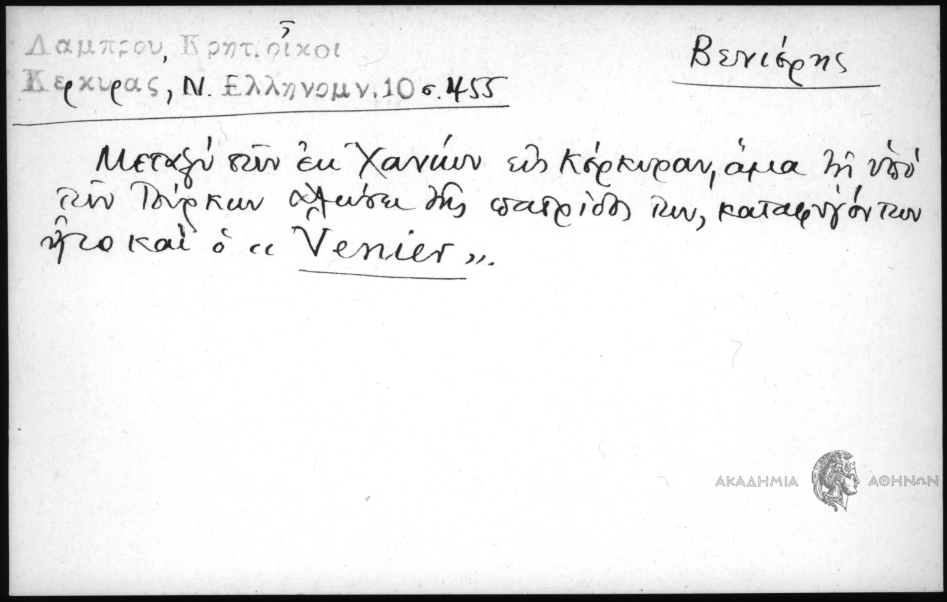 Λαμπρου, Κρητ. οἶκοι
Κερκυρας, Ν. Ελληνομν. 10 σ. 455
Βενιέρης
Μεταξύ τῶν ἐκ Χανίων εἰς Κέρκυραν, ἅμα τῇ ὑπό
τῶν Τούρκων ἁλώσει τῆς πατρίδος των, καταφυγόντων
ἦτο καὶ ὁ « Venier ».
ΑΚΑΔΗΜΙΑ ΑΘΗΝΩΝ